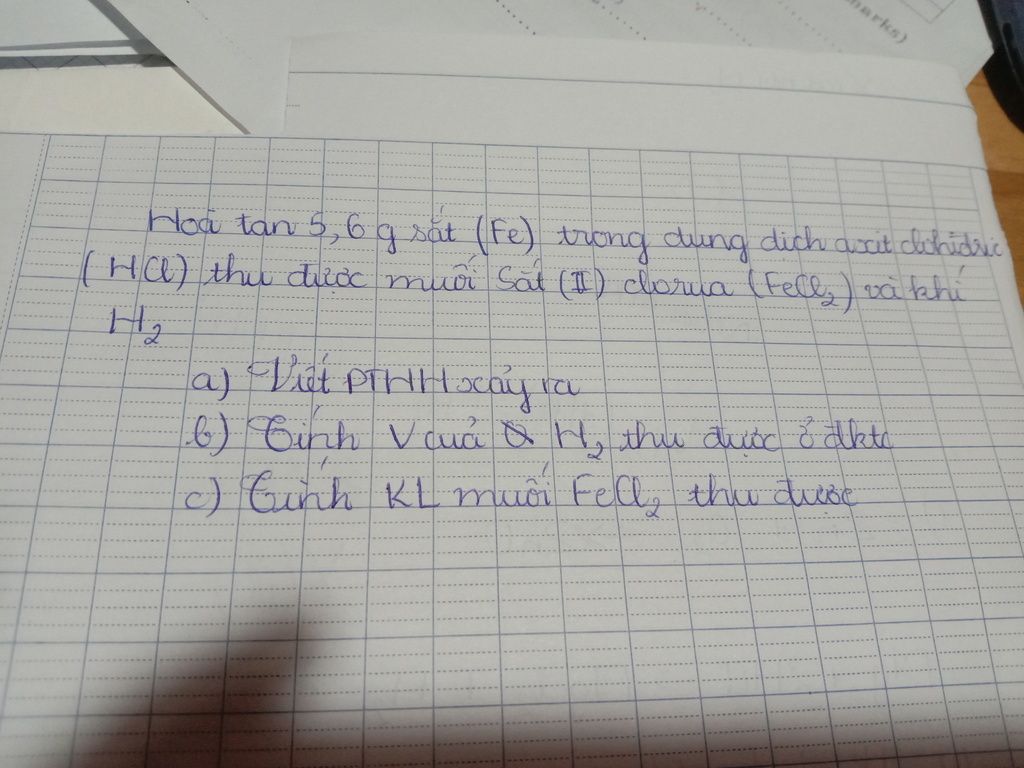 marks)
Hoà tan 5,6 g sắt (Fe) trong dung dich axit clohidric
(HCl) thu được muối Sắt (II) clorua (FeCl₂) và khí
H₂
a) Viết PTHH xảy ra
b) Tính V của H₂ thu được ở đktc
c) Tính KL muối FeCl₂ thu được